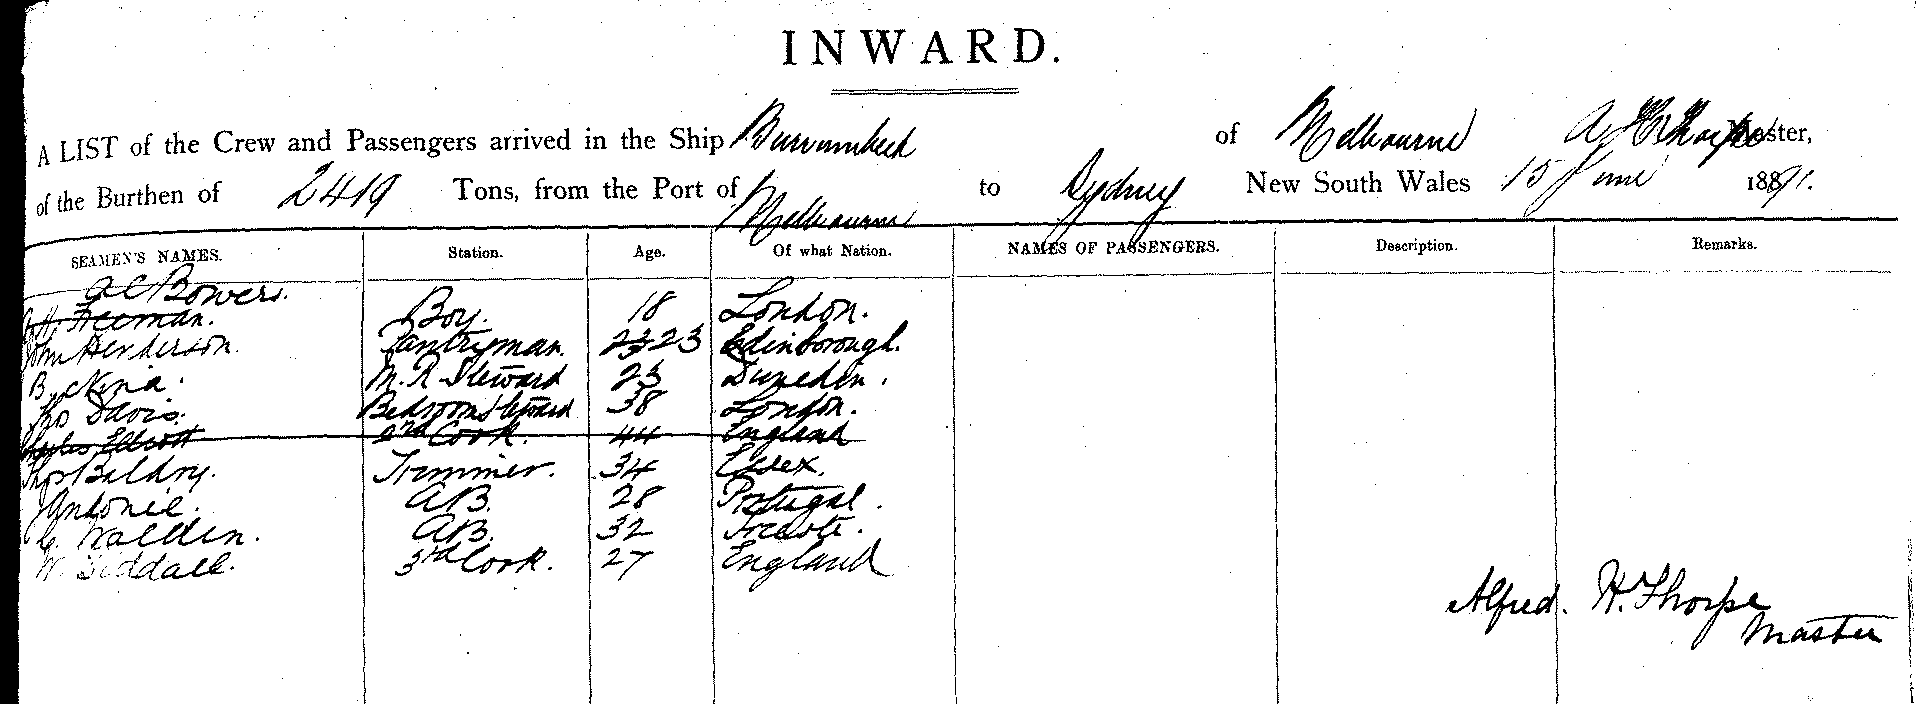 INWARD.
A LIST of the Crew and Passengers arrived in the Ship Burrumbeet of Melbourne A H Thorpe Master,
of the Burthen of 2419 Tons, from the Port of Melbourne to Sydney New South Wales 15 June 1891.
SEAMEN'S NAMES. Station. Age. Of what Nation. NAMES OF PASSENGERS. Description. Remarks.
A C Bowers.
Freeman. Boy. 18 London.
John Henderson. Pantryman. 23 23 Edinborough.
M. R. Steward 23 Dunedin.
Thos Davis. Bedroom Steward 38 London.
Charles Ellcott 2nd Cook. 44 England
Thos Baldry. Trimmer. 34 Essex.
J Antonie. AB. 28 Portugal.
Walden. AB. 32
W. Siddall. 3rd Cook. 27 England
Alfred. H. Thorpe
Master